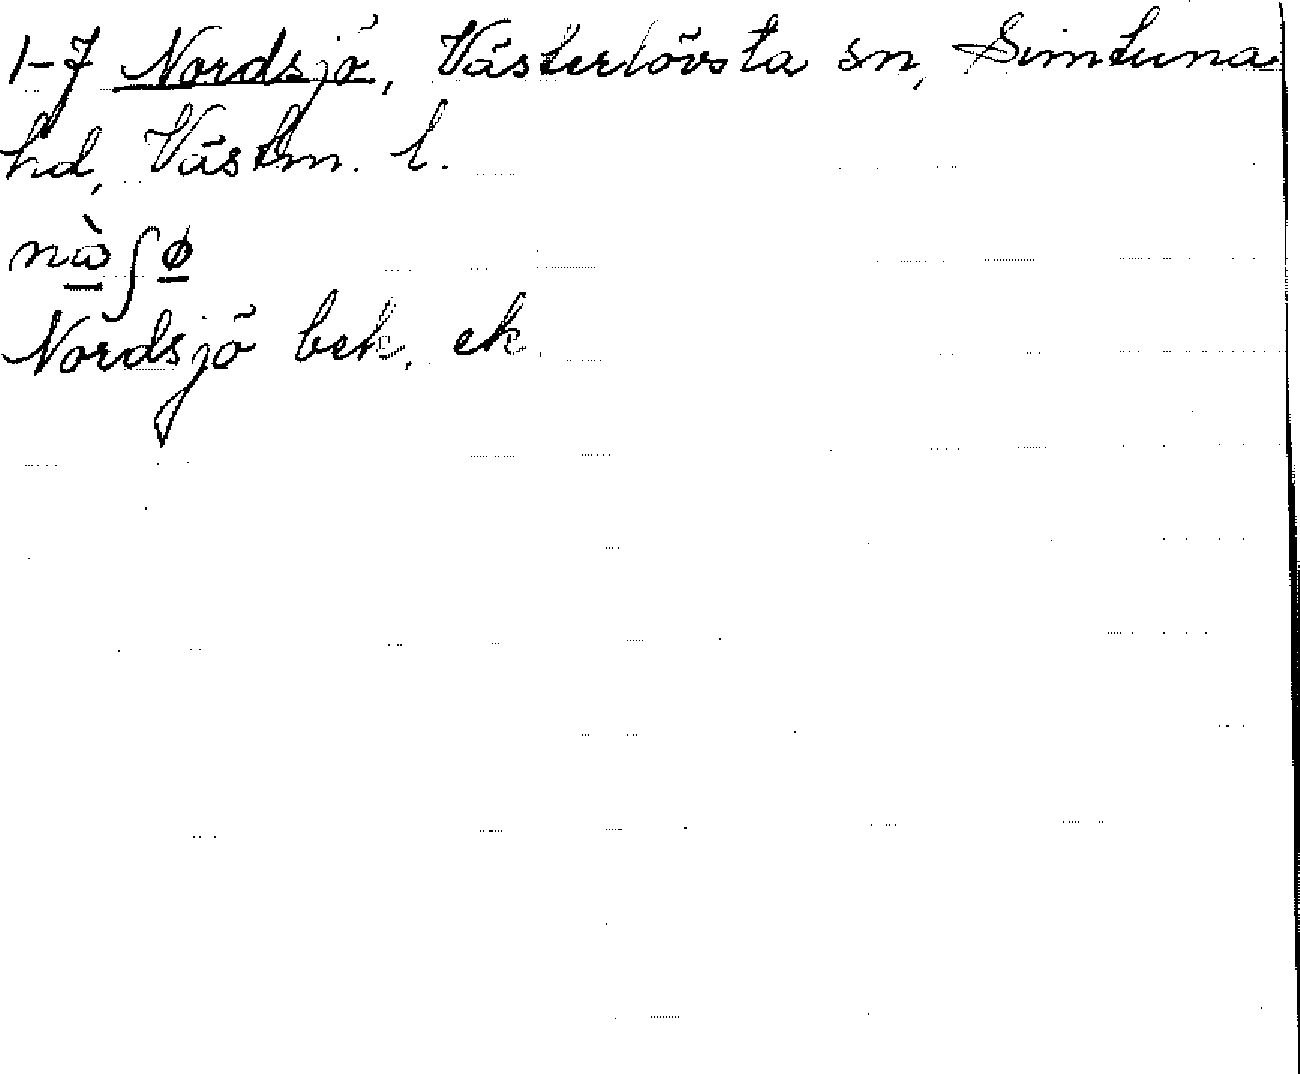 1-7 Nordsjö, Västerlövsta sn, Simtuna
hd, Västm. l.
nàʃø
Nordsjö bek. ek.